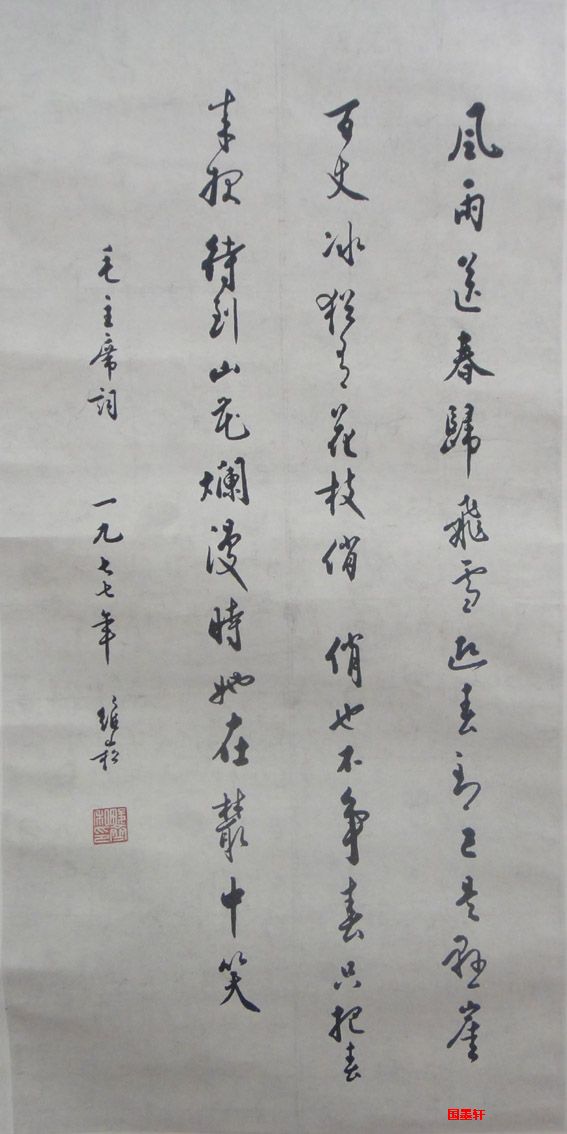 風雨送春歸飛雪迎春到已是懸崖
百丈冰猶有花枝俏 俏也不爭春只把春
来报 待到山花爛漫時她在叢中笑
毛主席詞 一九七七年
国墨轩